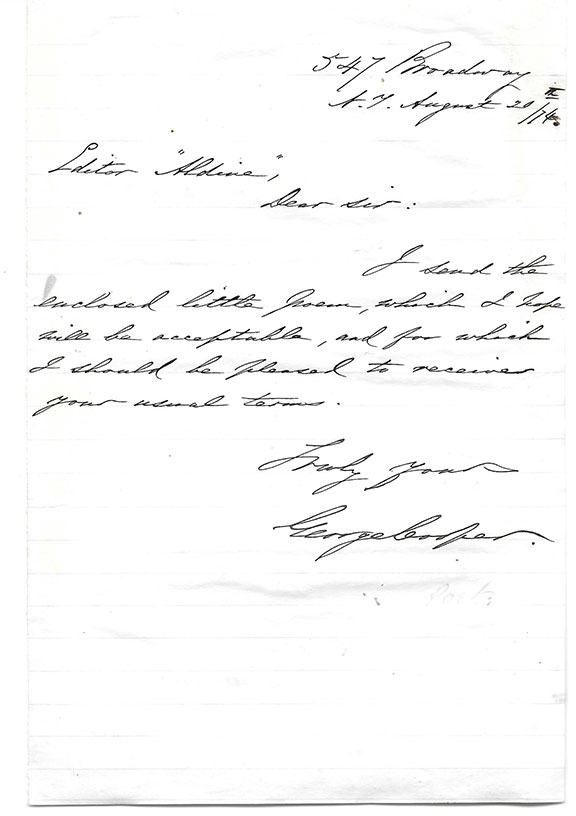 547 Broadway
N.Y. August 20th/74.
Editor "Aldine",
Dear sir:
I send the
enclosed little poem, which I hope
will be acceptable, and for which
I should be pleased to receive
your usual terms.
Truly yours
George Cooper.
Poet.